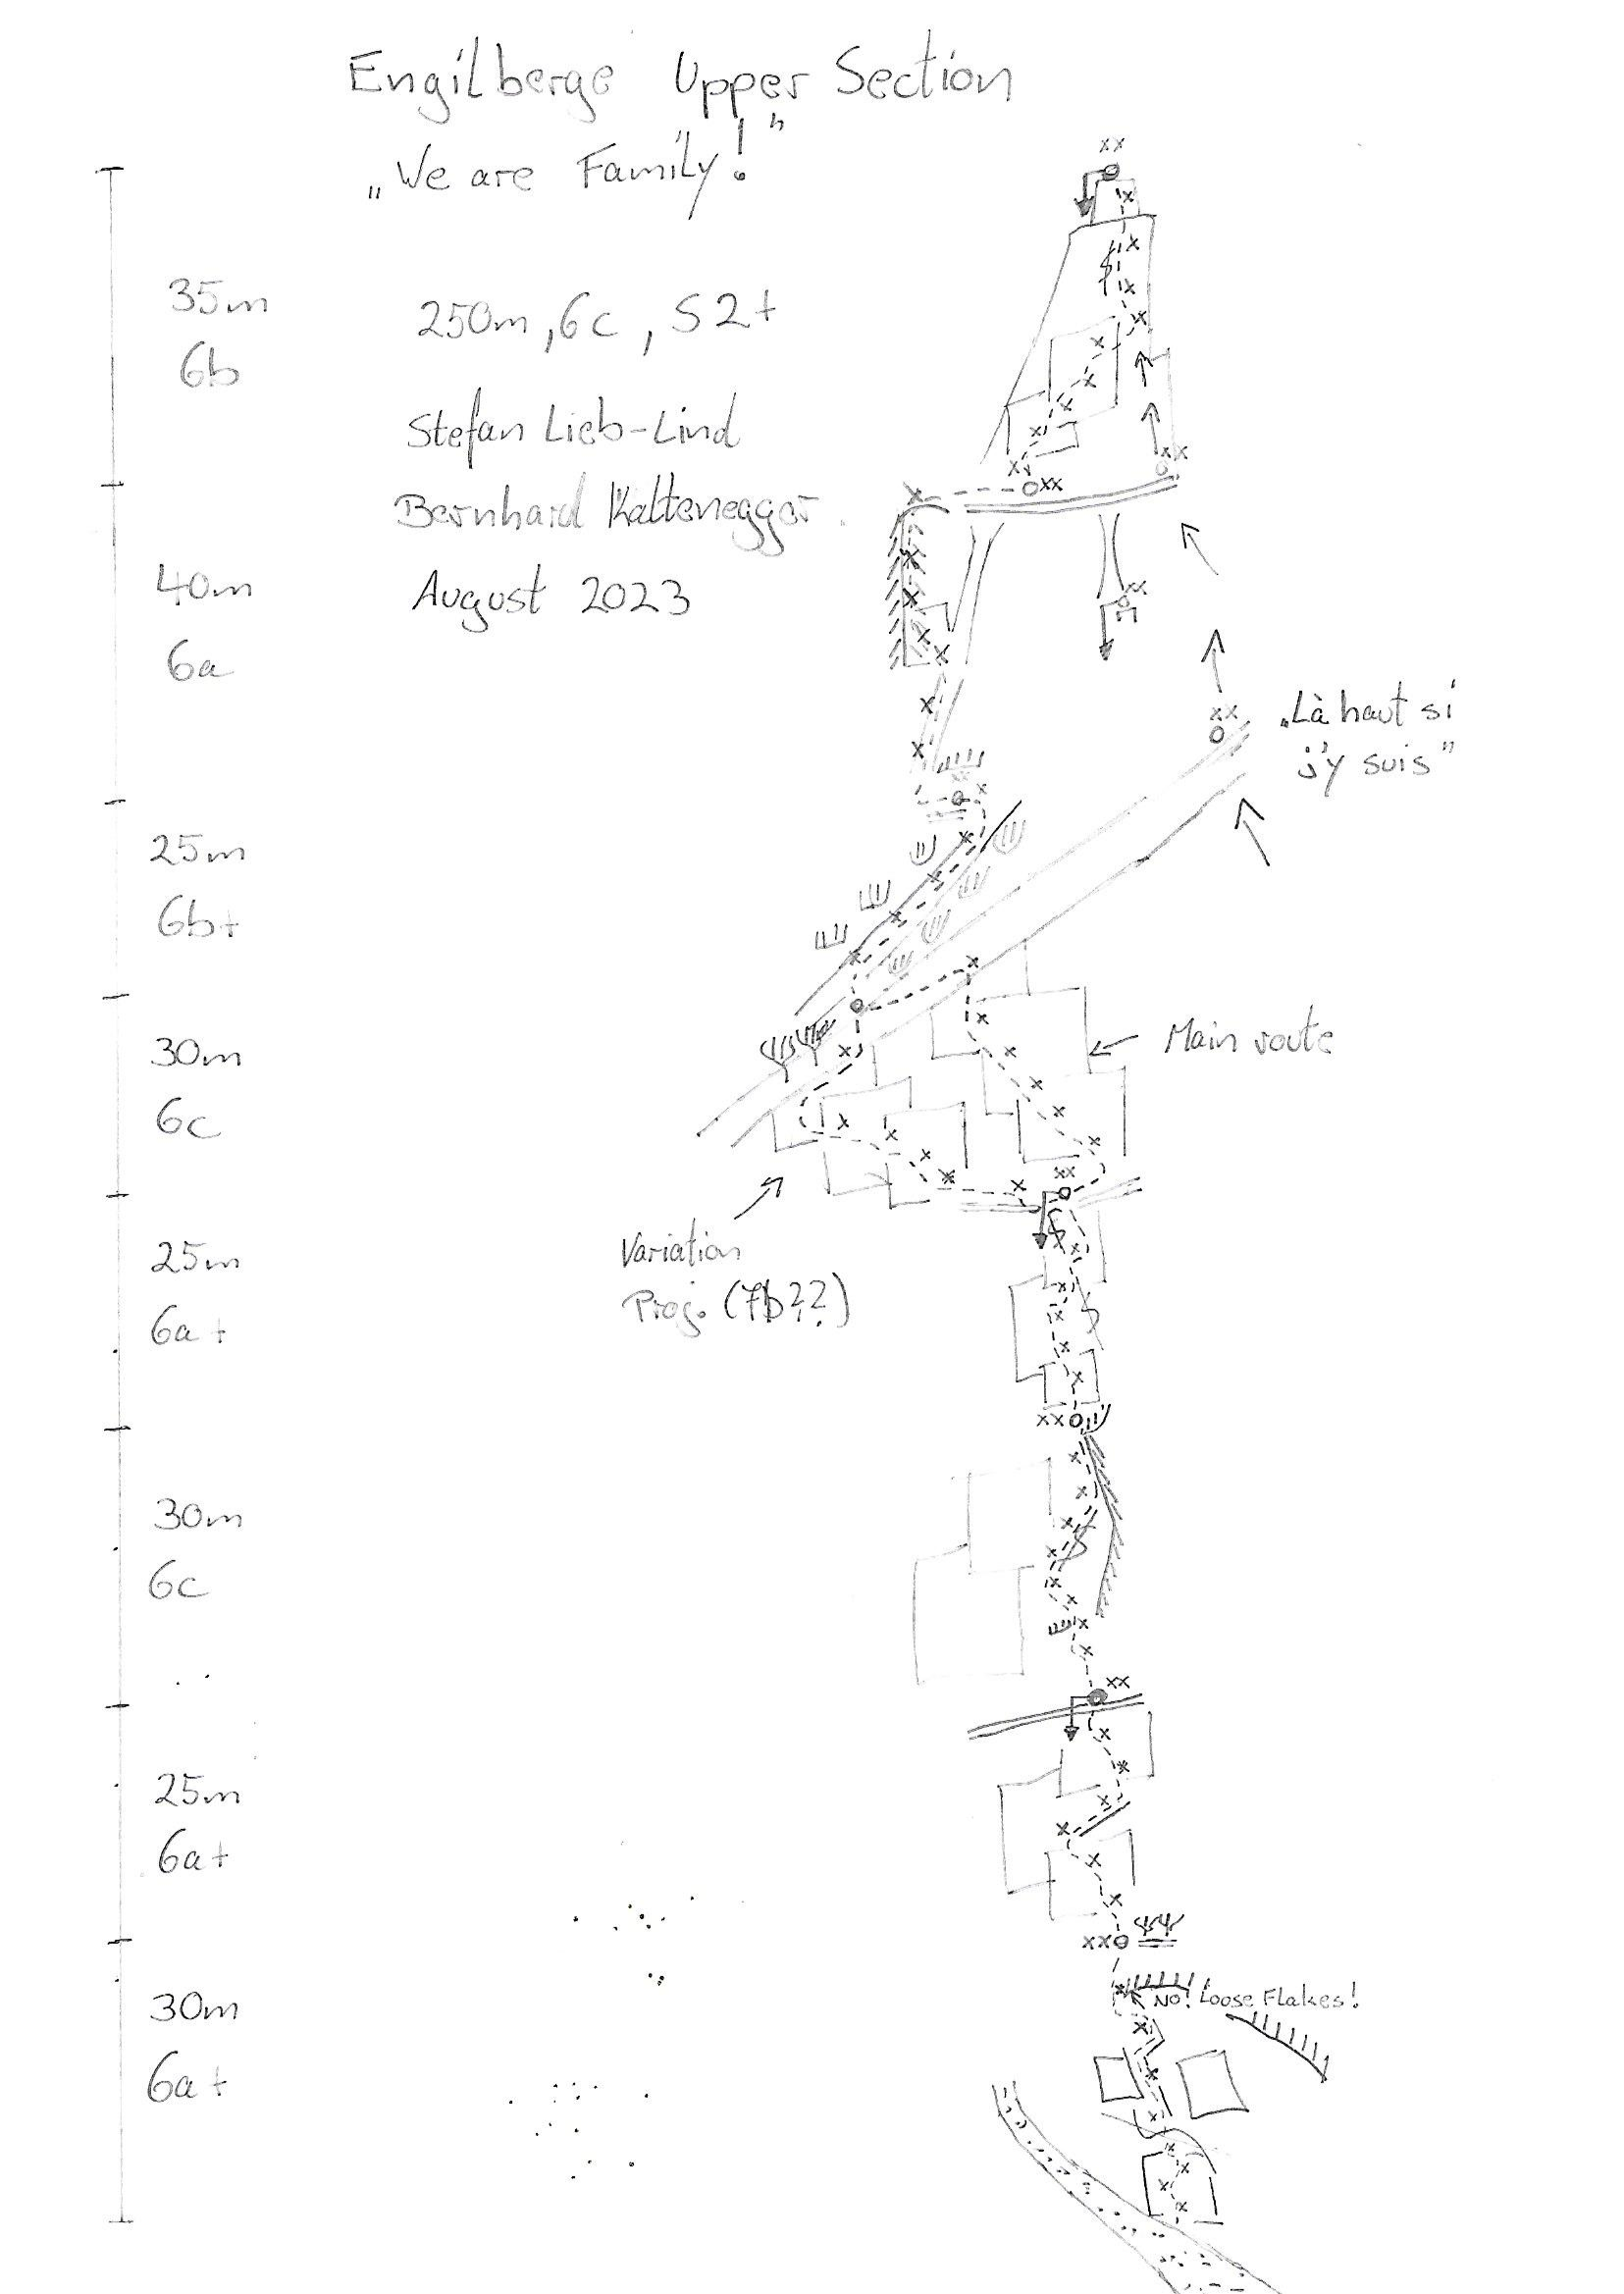 Engilberge Upper Section
„We are Family!"
35m
6b
250m, 6c, S2+
Stefan Lieb-Lind
Bernhard Kaltenegger
August 2023
40m
6a
„Là haut si
j'y suis"
25m
6b+
30m
6c
Main route
Variation
Proj. (7b??)
25m
6a+
30m
6c
25m
6a+
30m
6a+
NO! Loose Flakes!